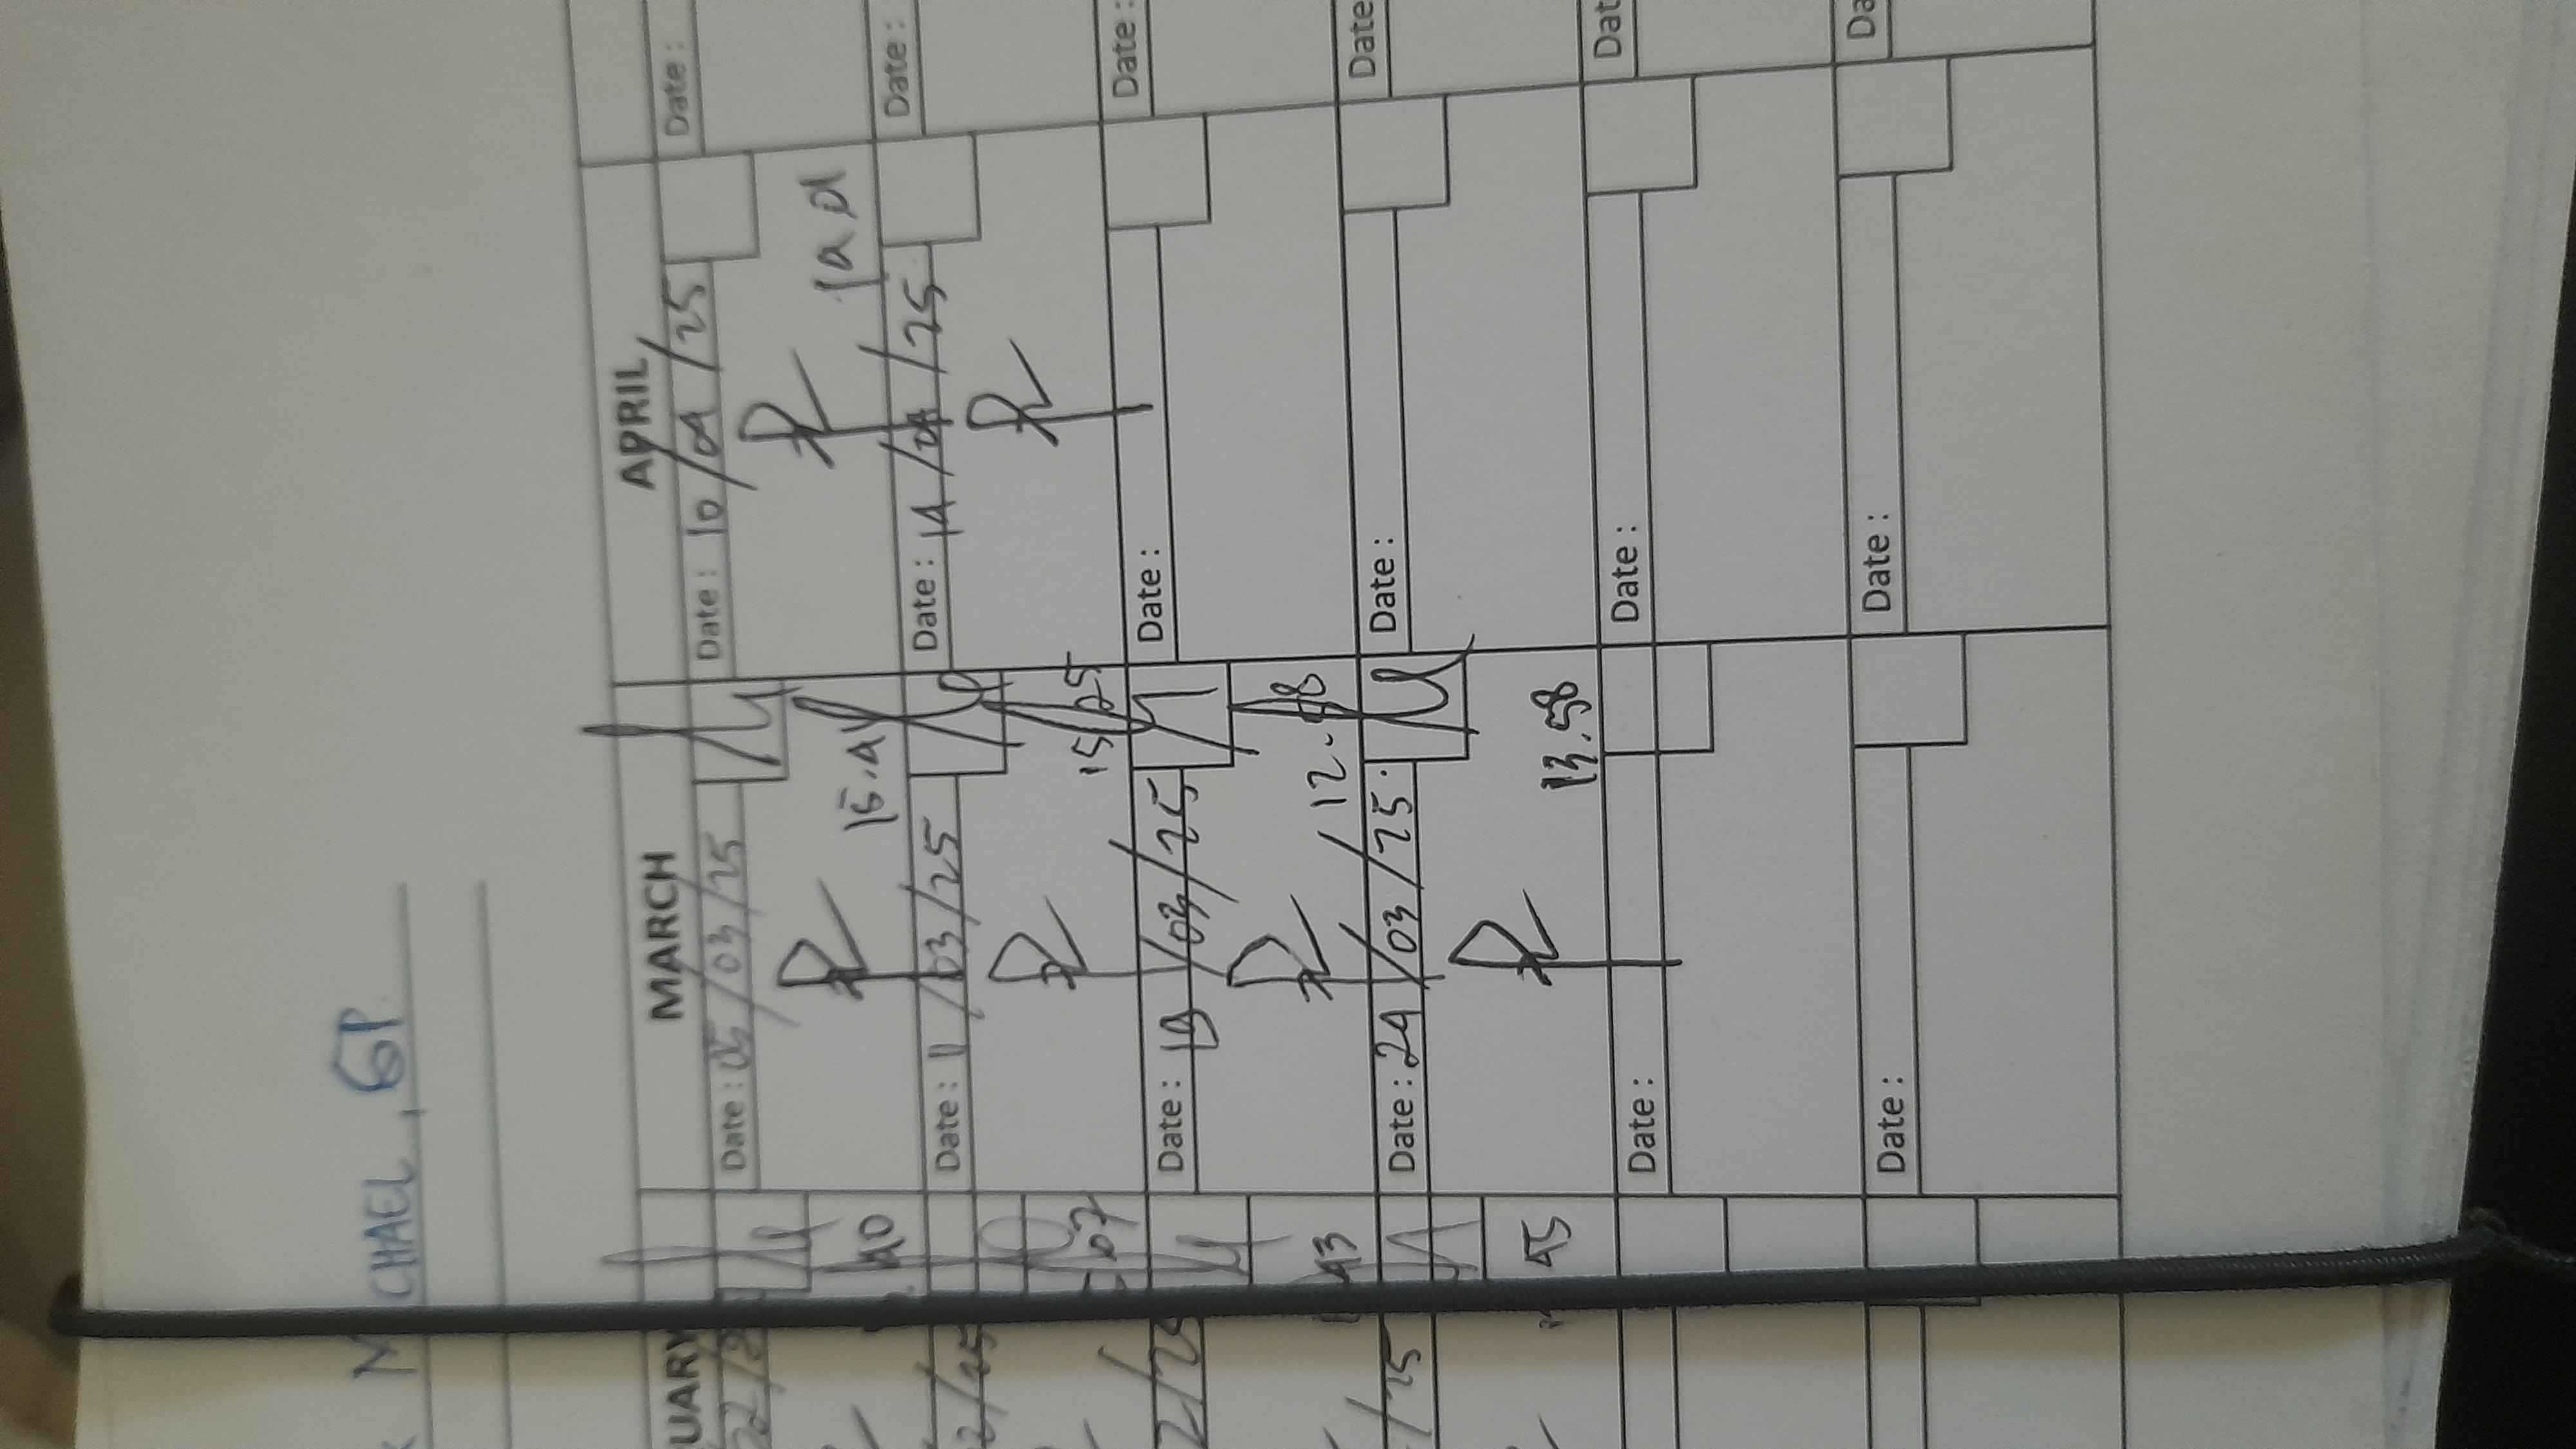 M CHAEL, GP
UARY MARCH APRIL
22/2 Date: 05/03/25 Date: 10/04/25 Date:
40 15.41
2/25 Date: 11/03/25 Date: 14/04/25 Date:
07 15/25
2/25 Date: 19/03/25 Date: Date:
43
/25 Date: 24/03/25. Date: Date
45 13.58
Date: Date: Dat
Date: Date: Da